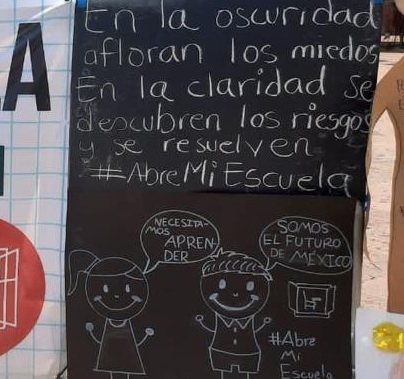 A
En la oscuridad
afloran los miedos
En la claridad se
descubren los riesgos
y se resuelven
#AbreMiEscuela
NECESITA-
MOS
APREN-
DER
SOMOS
EL FUTURO
DE MÉXICO
#Abre
Mi
Escuela